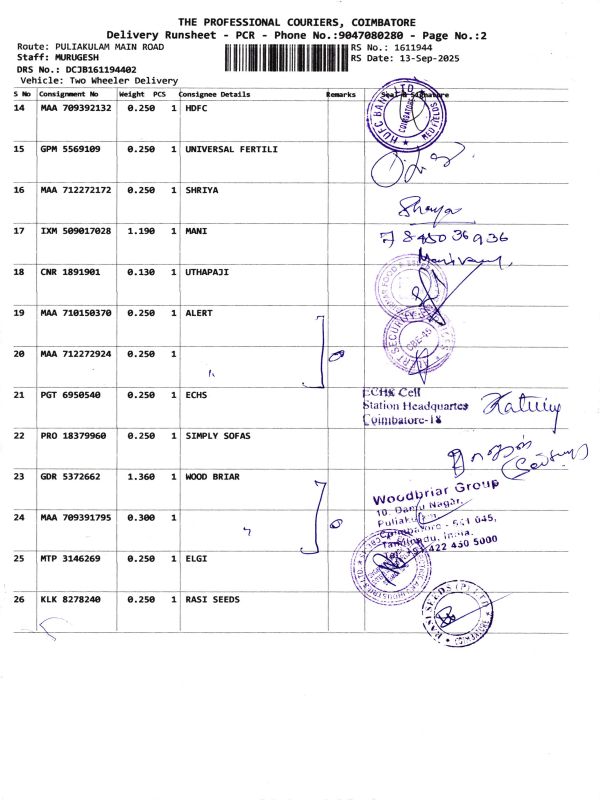 THE PROFESSIONAL COURIERS, COIMBATORE
Delivery Runsheet - PCR - Phone No.:9047080280 - Page No.:2
Route: PULIAKULAM MAIN ROAD RS No.: 1611944
Staff: MURUGESH RS Date: 13-Sep-2025
DRS No.: DCJB161194402
Vehicle: Two Wheeler Delivery
S No Consignment No Weight PCS Consignee Details Remarks Seal & Signature
14 MAA 709392132 0.250 1 HDFC
HDFC BANK LTD
COIMBATORE
15 GPM 5569109 0.250 1 UNIVERSAL FERTILI
16 MAA 712272172 0.250 1 SHRIYA
Shreya
17 IXM 509017028 1.190 1 MANI
7845036936
18 CNR 1891901 0.130 1 UTHAPAJI
19 MAA 710150370 0.250 1 ALERT
20 MAA 712272924 0.250 1
CBE-45
21 PGT 6950540 0.250 1 ECHS
ECHS Cell
Station Headquartes
Coimbatore-18
22 PRO 18379960 0.250 1 SIMPLY SOFAS
23 GDR 5372662 1.360 1 WOOD BRIAR
Woodbriar Group
10, Damu Nagar,
Puliakulam
24 MAA 709391795 0.300 1
Coimbatore - 641 045,
Tamilnadu, India.
Tel: +91 422 430 5000
25 MTP 3146269 0.250 1 ELGI
26 KLK 8278240 0.250 1 RASI SEEDS
RASI SEEDS (P) LTD
COIMBATORE